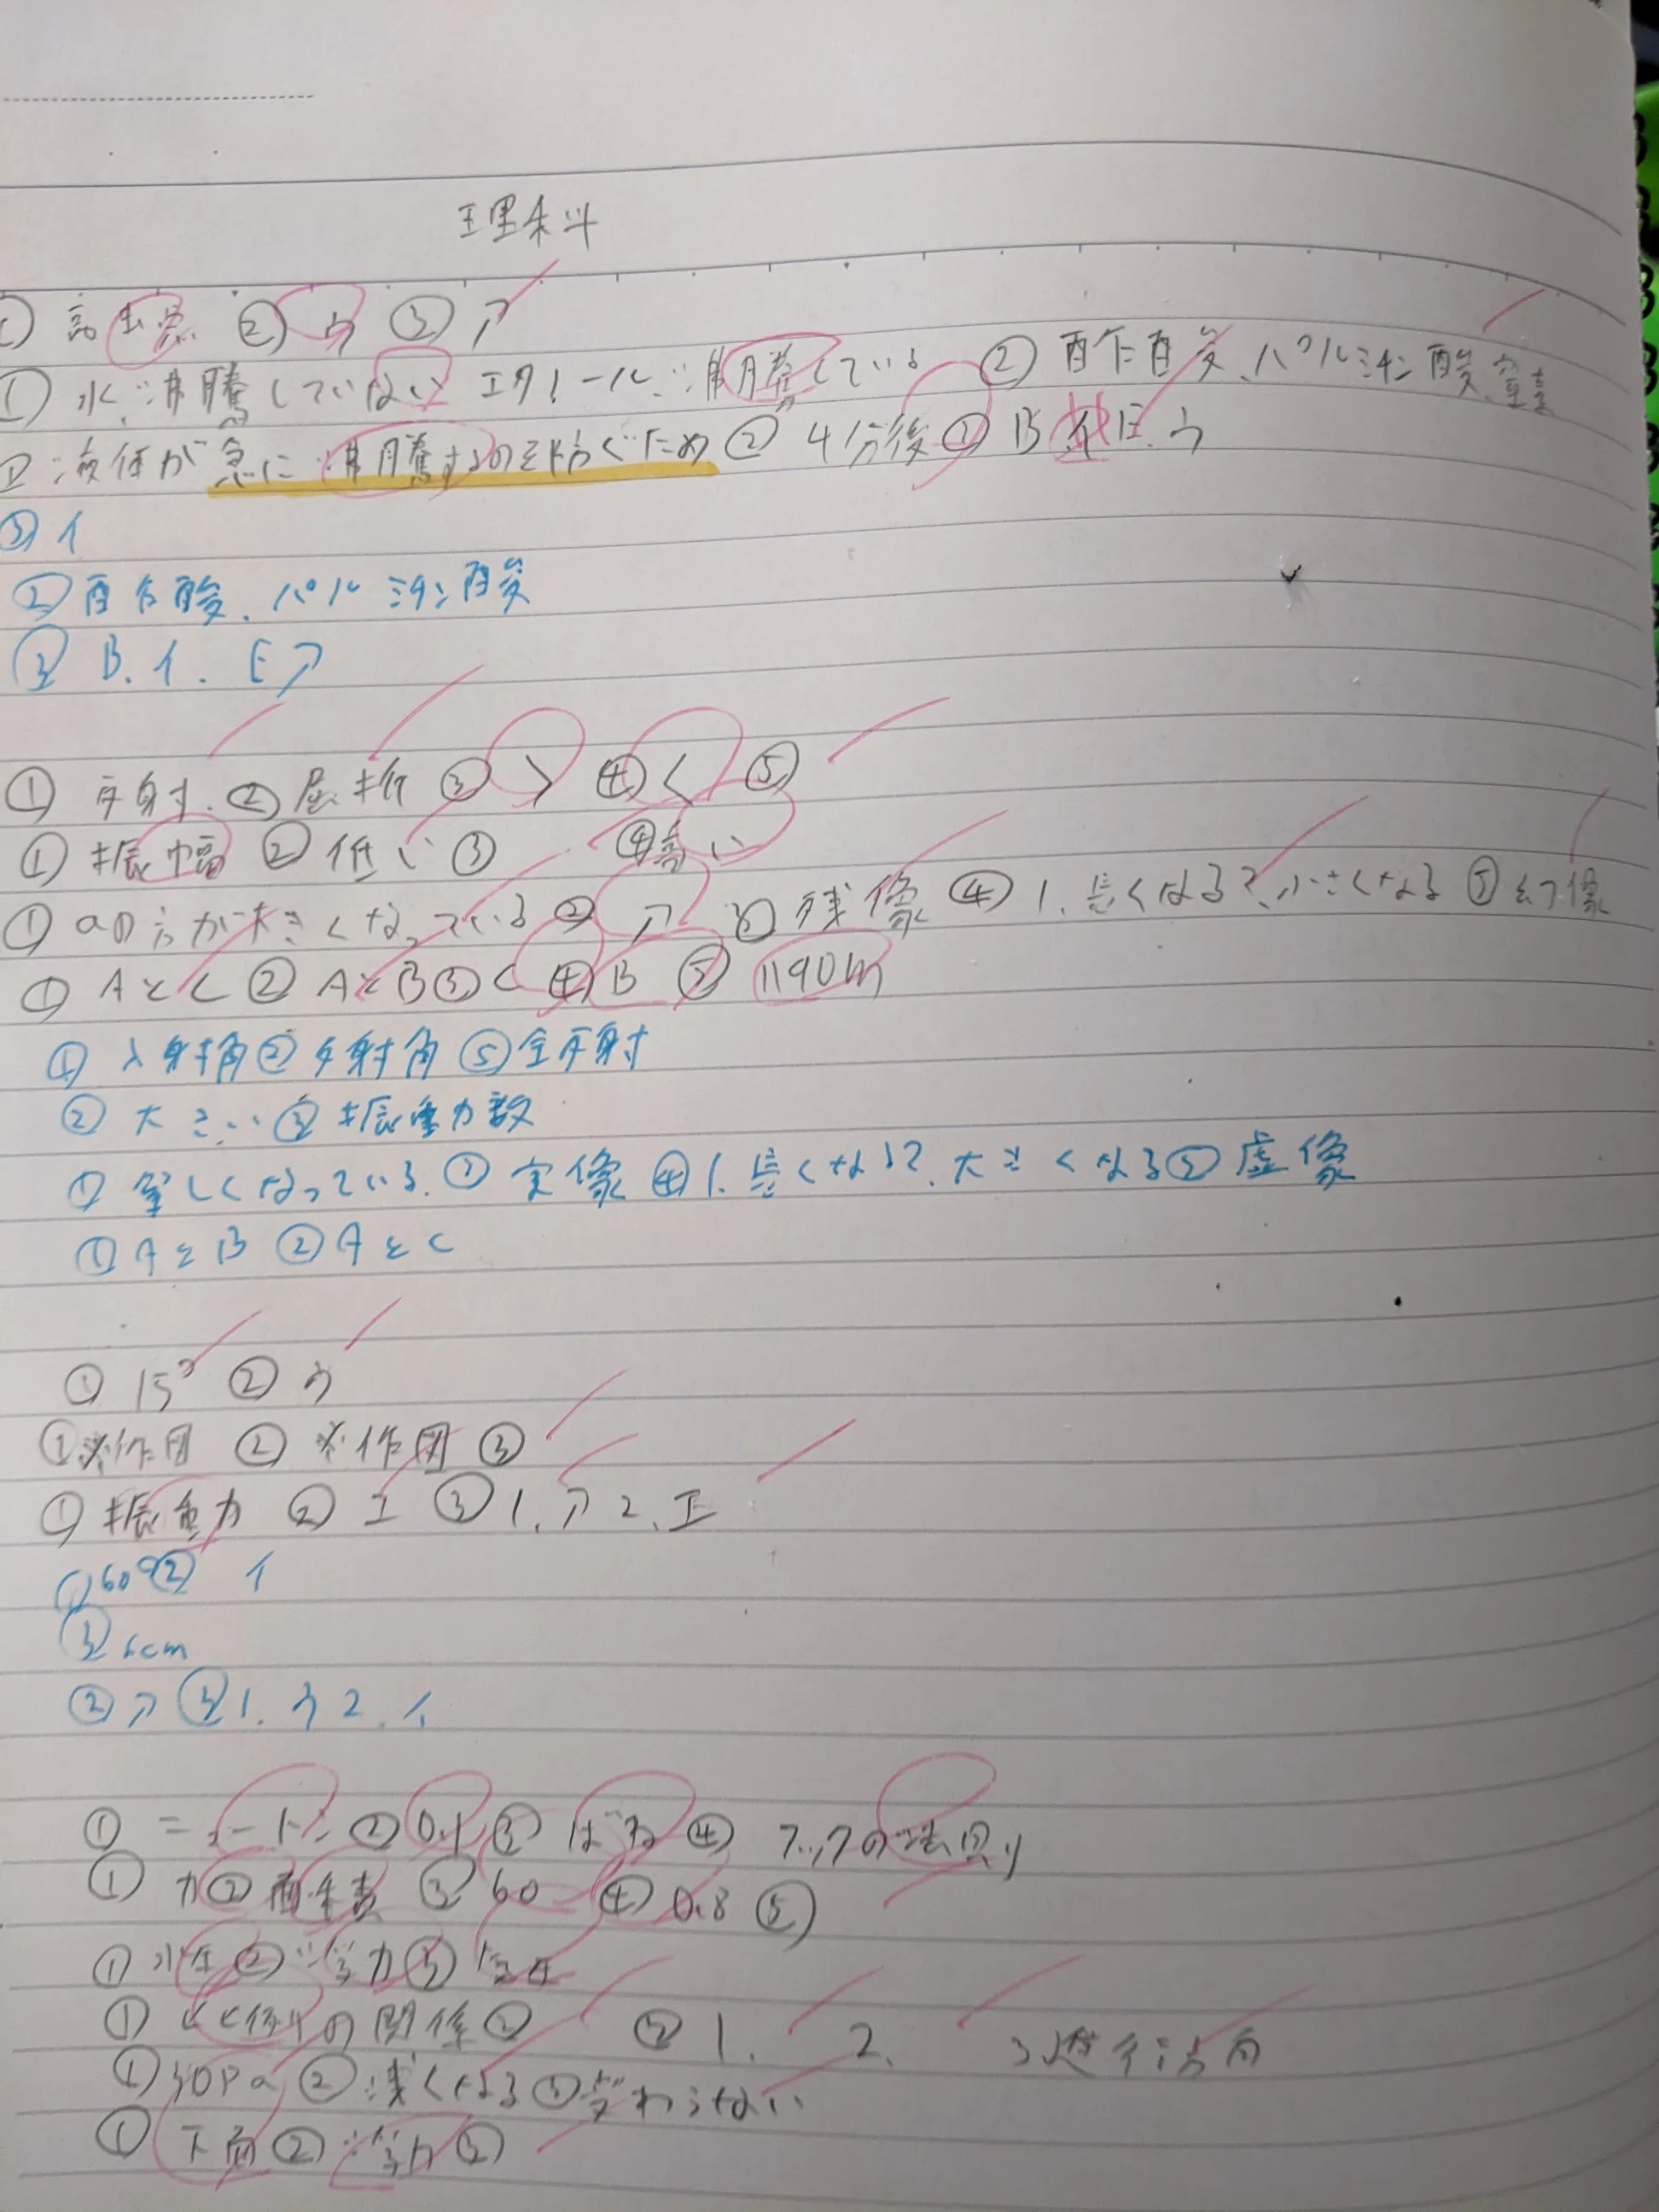 理科
① 融点 ② ウ ③ ア
① 水 沸騰していない エタノール 沸騰している ② 酢酸、パルミチン酸、窒素
① 液体が急に沸騰するのを防ぐため ② 4分後 ③ B E ウ
③ イ
② 酢酸、パルミチン酸
③ B.イ. E ア
① 反射 ② 屈折 ③ > ④ < ⑤
① 振幅 ② 低い ③ ④ 高い
① aの方が大きくなっている ② ア ③ 残像 ④ 1.長くなる 2.小さくなる ⑤ 幻像
① AとC ② AとB ③ C ④ B ⑤ 1190m
① 入射角 ② 反射角 ⑤ 全反射
② 大きい ③ 振動数
① 等しくなっている ③ 実像 ④ 1.長くなる 2.大きくなる ⑤ 虚像
① AとB ② AとC
① 15° ② ウ
① 作図 ② ※作図 ③
① 振動 ② エ ③ 1.ア 2.エ
① 60° ② イ
③ 6cm
② ア ③ 1.ウ 2.イ
① ニュートン ② 0.1 ③ ばね ④ フックの法則
① 力 ② 面積 ③ 60 ④ 0.8 ⑤
① 水圧 ② 浮力 ③
① 比例の関係 ② ② 1. 2. 3 進行方向
① 30Pa ② 浅くなる ③ 変わらない
① 下面 ② 浮力 ③